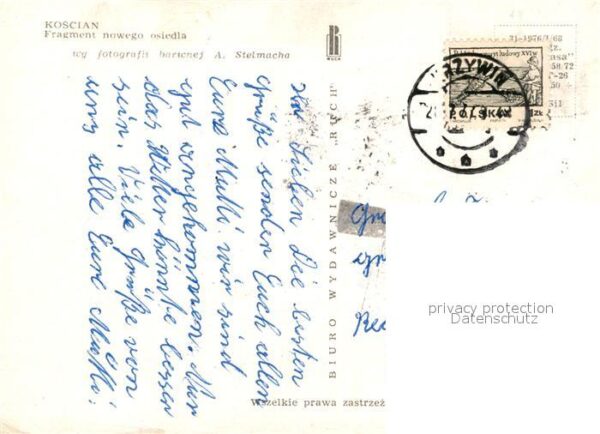 KOŚCIAN
Fragment nowego osiedla
wg fotografii barwnej A. Stelmacha
RUCH
BIURO WYDAWNICZE „RUCH"
Wszelkie prawa zastrzeż
Ihr Lieben Die besten
Grüße senden Euch allen
Eure Mutti. wir sind
gut angekommen. Nur
das Wetter könnte besser
sein. Viele Grüße von
uns alle Eure Mutti.
KRZYWIŃ
POLSKA
31-1976/I/68
58 72
-26
50
Gr
gr
privacy protection
Datenschutz